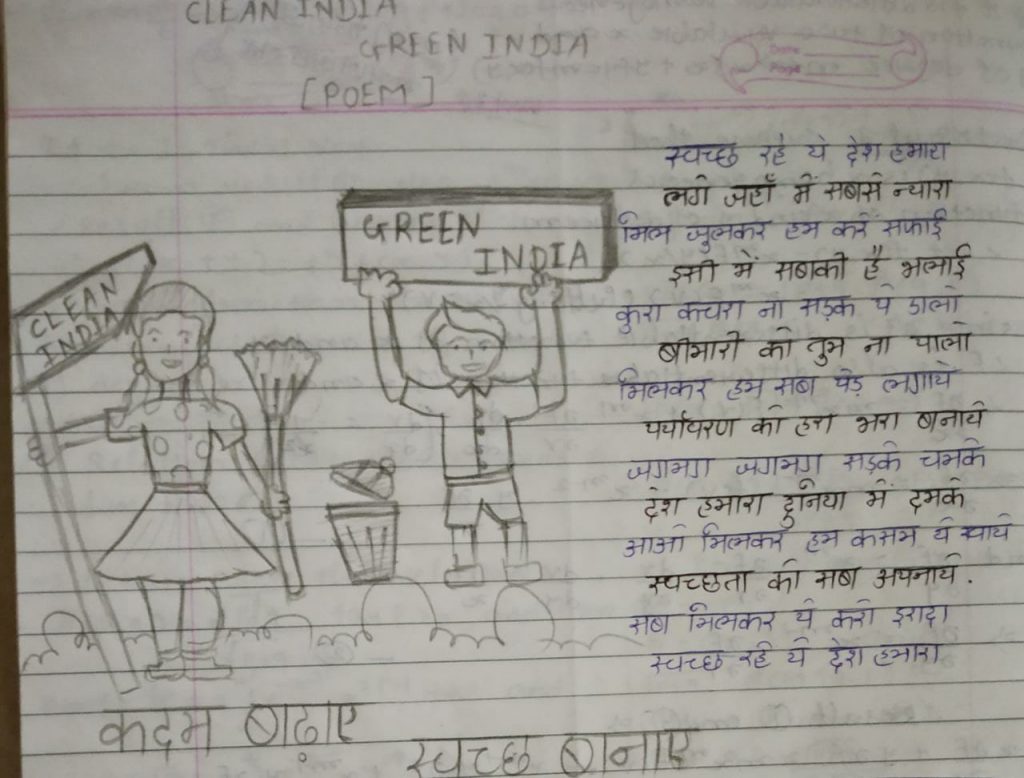 CLEAN INDIA
GREEN INDIA
[POEM]
Date
Page
GREEN
INDIA
CLEAN
INDIA
स्वच्छ रहे ये देश हमारा
लगे जहाँ में सबसे न्यारा
मिल जुलकर हम करे सफाई
इसी में सबकी है भलाई
कुरा कचरा ना सड़क पे डालो
बीमारी को तुम ना पालो
मिलकर हम सब पेड़ लगाये
पर्यावरण को हरा भरा बनाये
जगमग जगमग सड़के चमके
देश हमारा दुनिया में दमके
आओ मिलकर हम कसम ये खाये
स्वच्छता को सब अपनाये.
सब मिलकर ये करो इरादा
स्वच्छ रहे ये देश हमारा
कदम बाढ़ाए
स्वच्छ बानाए